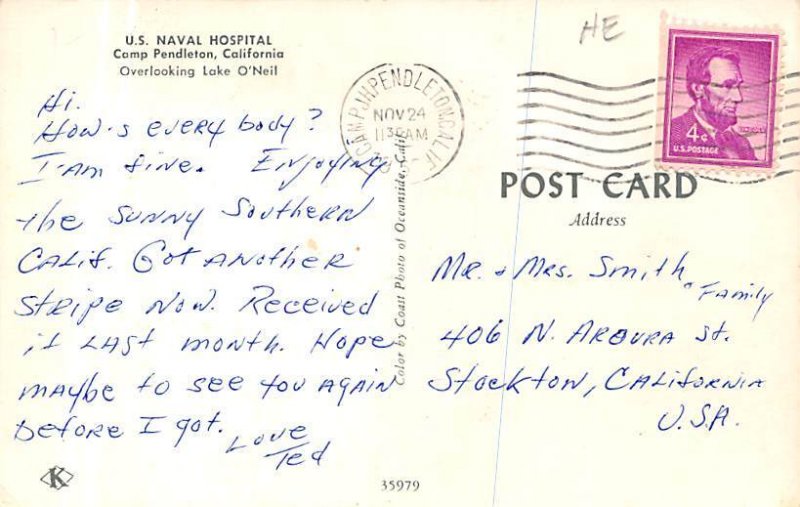 U.S. NAVAL HOSPITAL
Camp Pendleton, California
Overlooking Lake O'Neil
Hi.
How-s every body?
I-am fine. Enjoying
the sunny Southern
Calif. Got another
stripe now. Received
it last month. Hope
maybe to see you again
before I got.
Love
Ted
K
35979
Color by Coast Photo of Oceanside, Calif.
HE
PENDLETON, CALIF
NOV 24
11 30 AM
4¢
U.S. POSTAGE
LINCOLN
POST CARD
Address
Mr. + Mrs. Smith
+ Family
406 N. Arbura st.
Stockton, California
U.S.A.